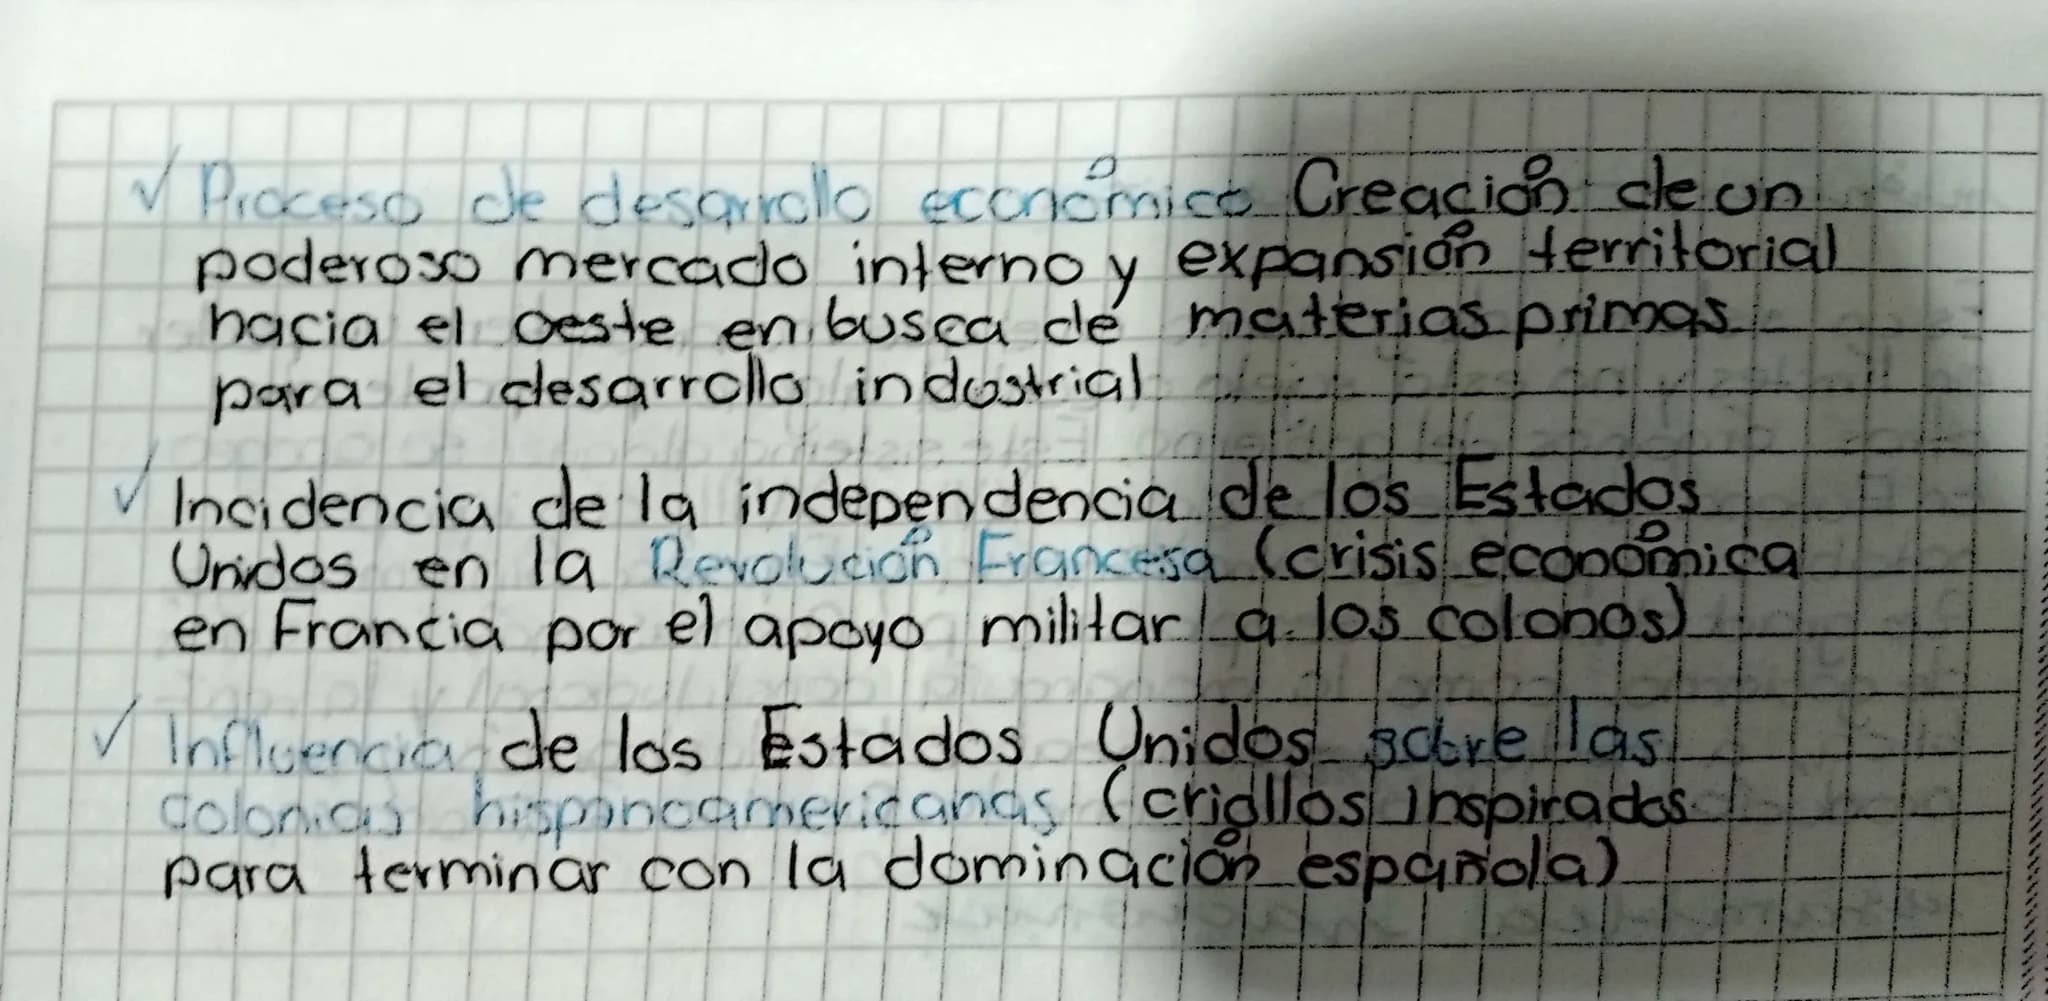 ✓ Proceso de desarrollo económico Creación de un
poderoso mercado interno y expansión territorial
hacia el oeste en busca de materias primas
para el desarrollo industrial
✓ Incidencia de la independencia de los Estados
Unidos en la Revolución Francesa (crisis económica
en Francia por el apoyo militar a los colonos)
✓ Influencia de los Estados Unidos sobre las
colonias hispanoamericanas (criollos inspirados
para terminar con la dominación española)